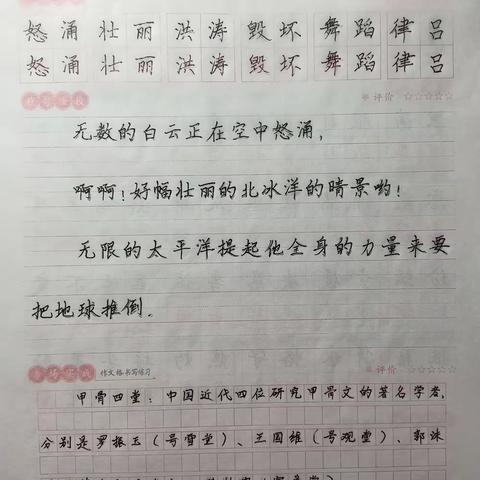 怒涌壮丽洪涛毁坏舞蹈律吕
怒涌壮丽洪涛毁坏舞蹈律吕
评价 ☆☆☆☆☆
无数的白云正在空中怒涌,
啊啊!好幅壮丽的北冰洋的晴景哟!
无限的太平洋提起他全身的力量来要
把地球推倒.
作文格书写练习
评价 ☆☆☆☆☆
甲骨四堂:中国近代四位研究甲骨文的著名学者,
分别是罗振玉(号雪堂)、王国维(号观堂)、郭沫